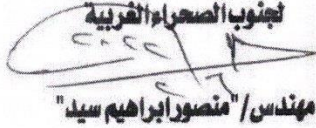 لجنوب الصحراء الغربية
٢٠٢٢
مهندس/"منصور ابراهيم سيد"